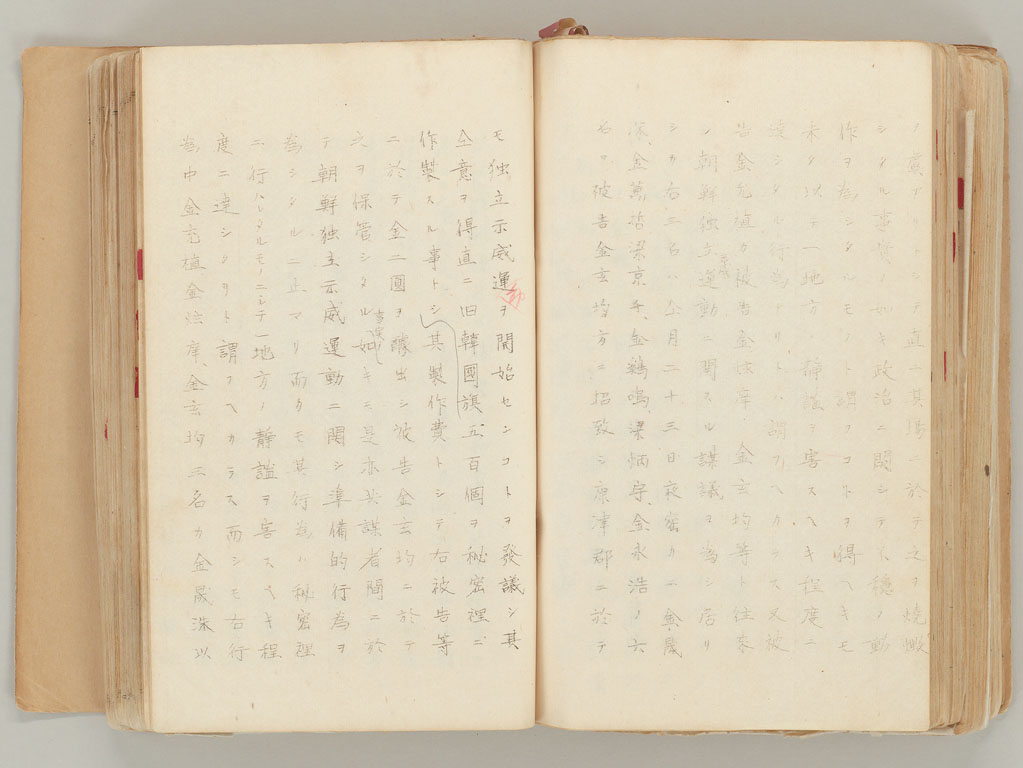 ノ蔵ナリトシテ直ニ其場ニ於テ之ヲ焼燬
シタル事実ノ如キ政治ニ関シテ不穏ノ動
作ヲ為シタルモノト謂フコトヲ得ヘキモ
未タ以テ一地方ノ静謐ヲ害スヘキ程度ニ
達シタル行為ナリトハ謂フヘカラス又被
告金充植カ被告金炫庠、金玄均等ト往来
シ朝鮮独立運動ニ関スル謀議ヲ為シ居リ
シカ右三名ハ仝月二十三日夜密カニ金晟
洙、金萬 梁京千、金鶏鳴、梁炳守、金永浩ノ六
名ヲ被告金玄均方ニ招致シ康津郡ニ於テ
モ独立示威運ヲ開始センコトヲ發議シ其
仝意ヲ得直ニ旧韓國旗五百個ヲ秘密裡ニ
作製スル事トシ其製作費トシテ右被告等
ニ於テ金二圓ヲ醵出シ被告金玄均ニ於テ
之ヲ保管シタル事実ノ如キモ是亦共謀者間ニ於
テ朝鮮独立示威運動ニ関シ準備的行為ヲ
為シタルニ止マリ而カモ其行為ハ秘密裡
ニ行ハレタルモノニシテ一地方ノ静謐ヲ害スヘキ程
度ニ達シタリト謂フヘカラス而シモ右行
為中金充植金炫庠、金玄均三名カ金晟洙以